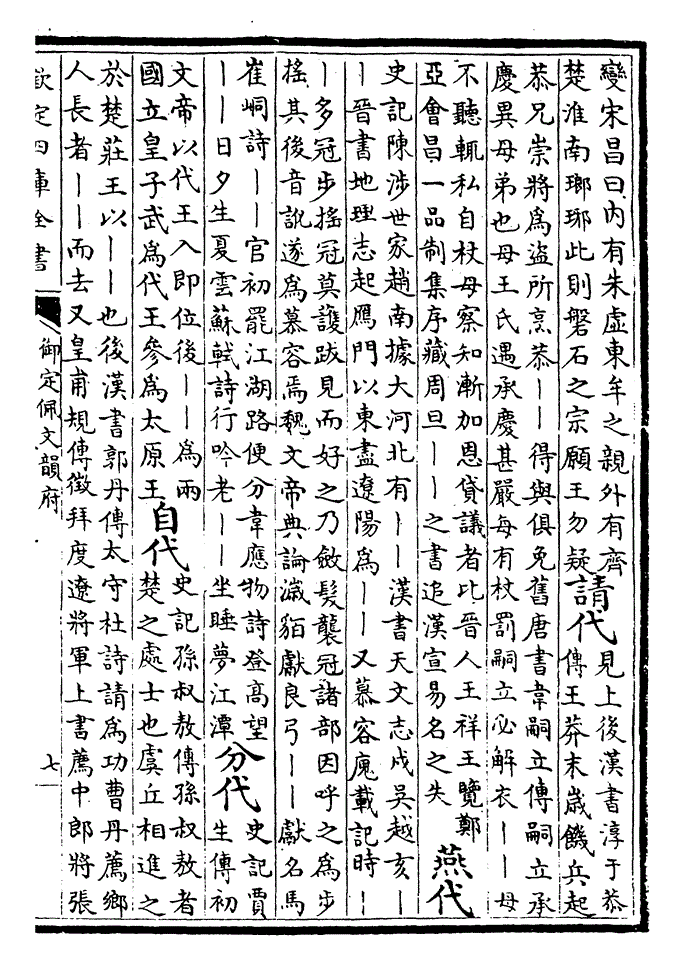 變宋昌曰内有朱虚東牟之親外有齊
楚淮南瑯琊此則磐石之宗願王勿疑
請代
見上後漢書淳于恭
傳王莽末歳饑兵起
恭兄崇將為盜所烹恭丨丨得與俱免舊唐書韋嗣立傳嗣立承
慶異母弟也母王氏遇承慶甚嚴每有杖罰嗣立必解衣丨丨母
不聽輒私自杖母察知漸加恩貸議者比晉人王祥王覽鄭
亞會昌一品制集序藏周旦丨丨之書追漢宣易名之失
燕代
史記陳涉世家趙南據大河北有丨丨漢書天文志戌吳越亥丨
丨晉書地理志起鴈門以東盡遼陽為丨丨又慕容廆載記時丨
丨多冠步揺冠莫䕶跋見而好之乃斂髮襲冠諸部因呼之為步
揺其後音訛遂為慕容焉魏文帝典論濊貊獻良弓丨丨獻名馬
崔峒詩丨丨官初罷江湖路便分韋應物詩登高望
丨丨日夕生夏雲蘇軾詩行吟老丨丨坐睡夢江潭
分代
史記賈
生傳初
文帝以代王入即位後丨丨為兩
國立皇子武為代王參為太原王
自代
史記孫叔敖傳孫叔敖者
楚之處士也虞丘相進之
於楚莊王以丨丨也後漢書郭丹傳太守杜詩請為功曹丹薦鄉
人長者丨丨而去又皇甫規傳徵拜度遼將軍上書薦中郎將張
欽定四庫全書
御定佩文韻府
七